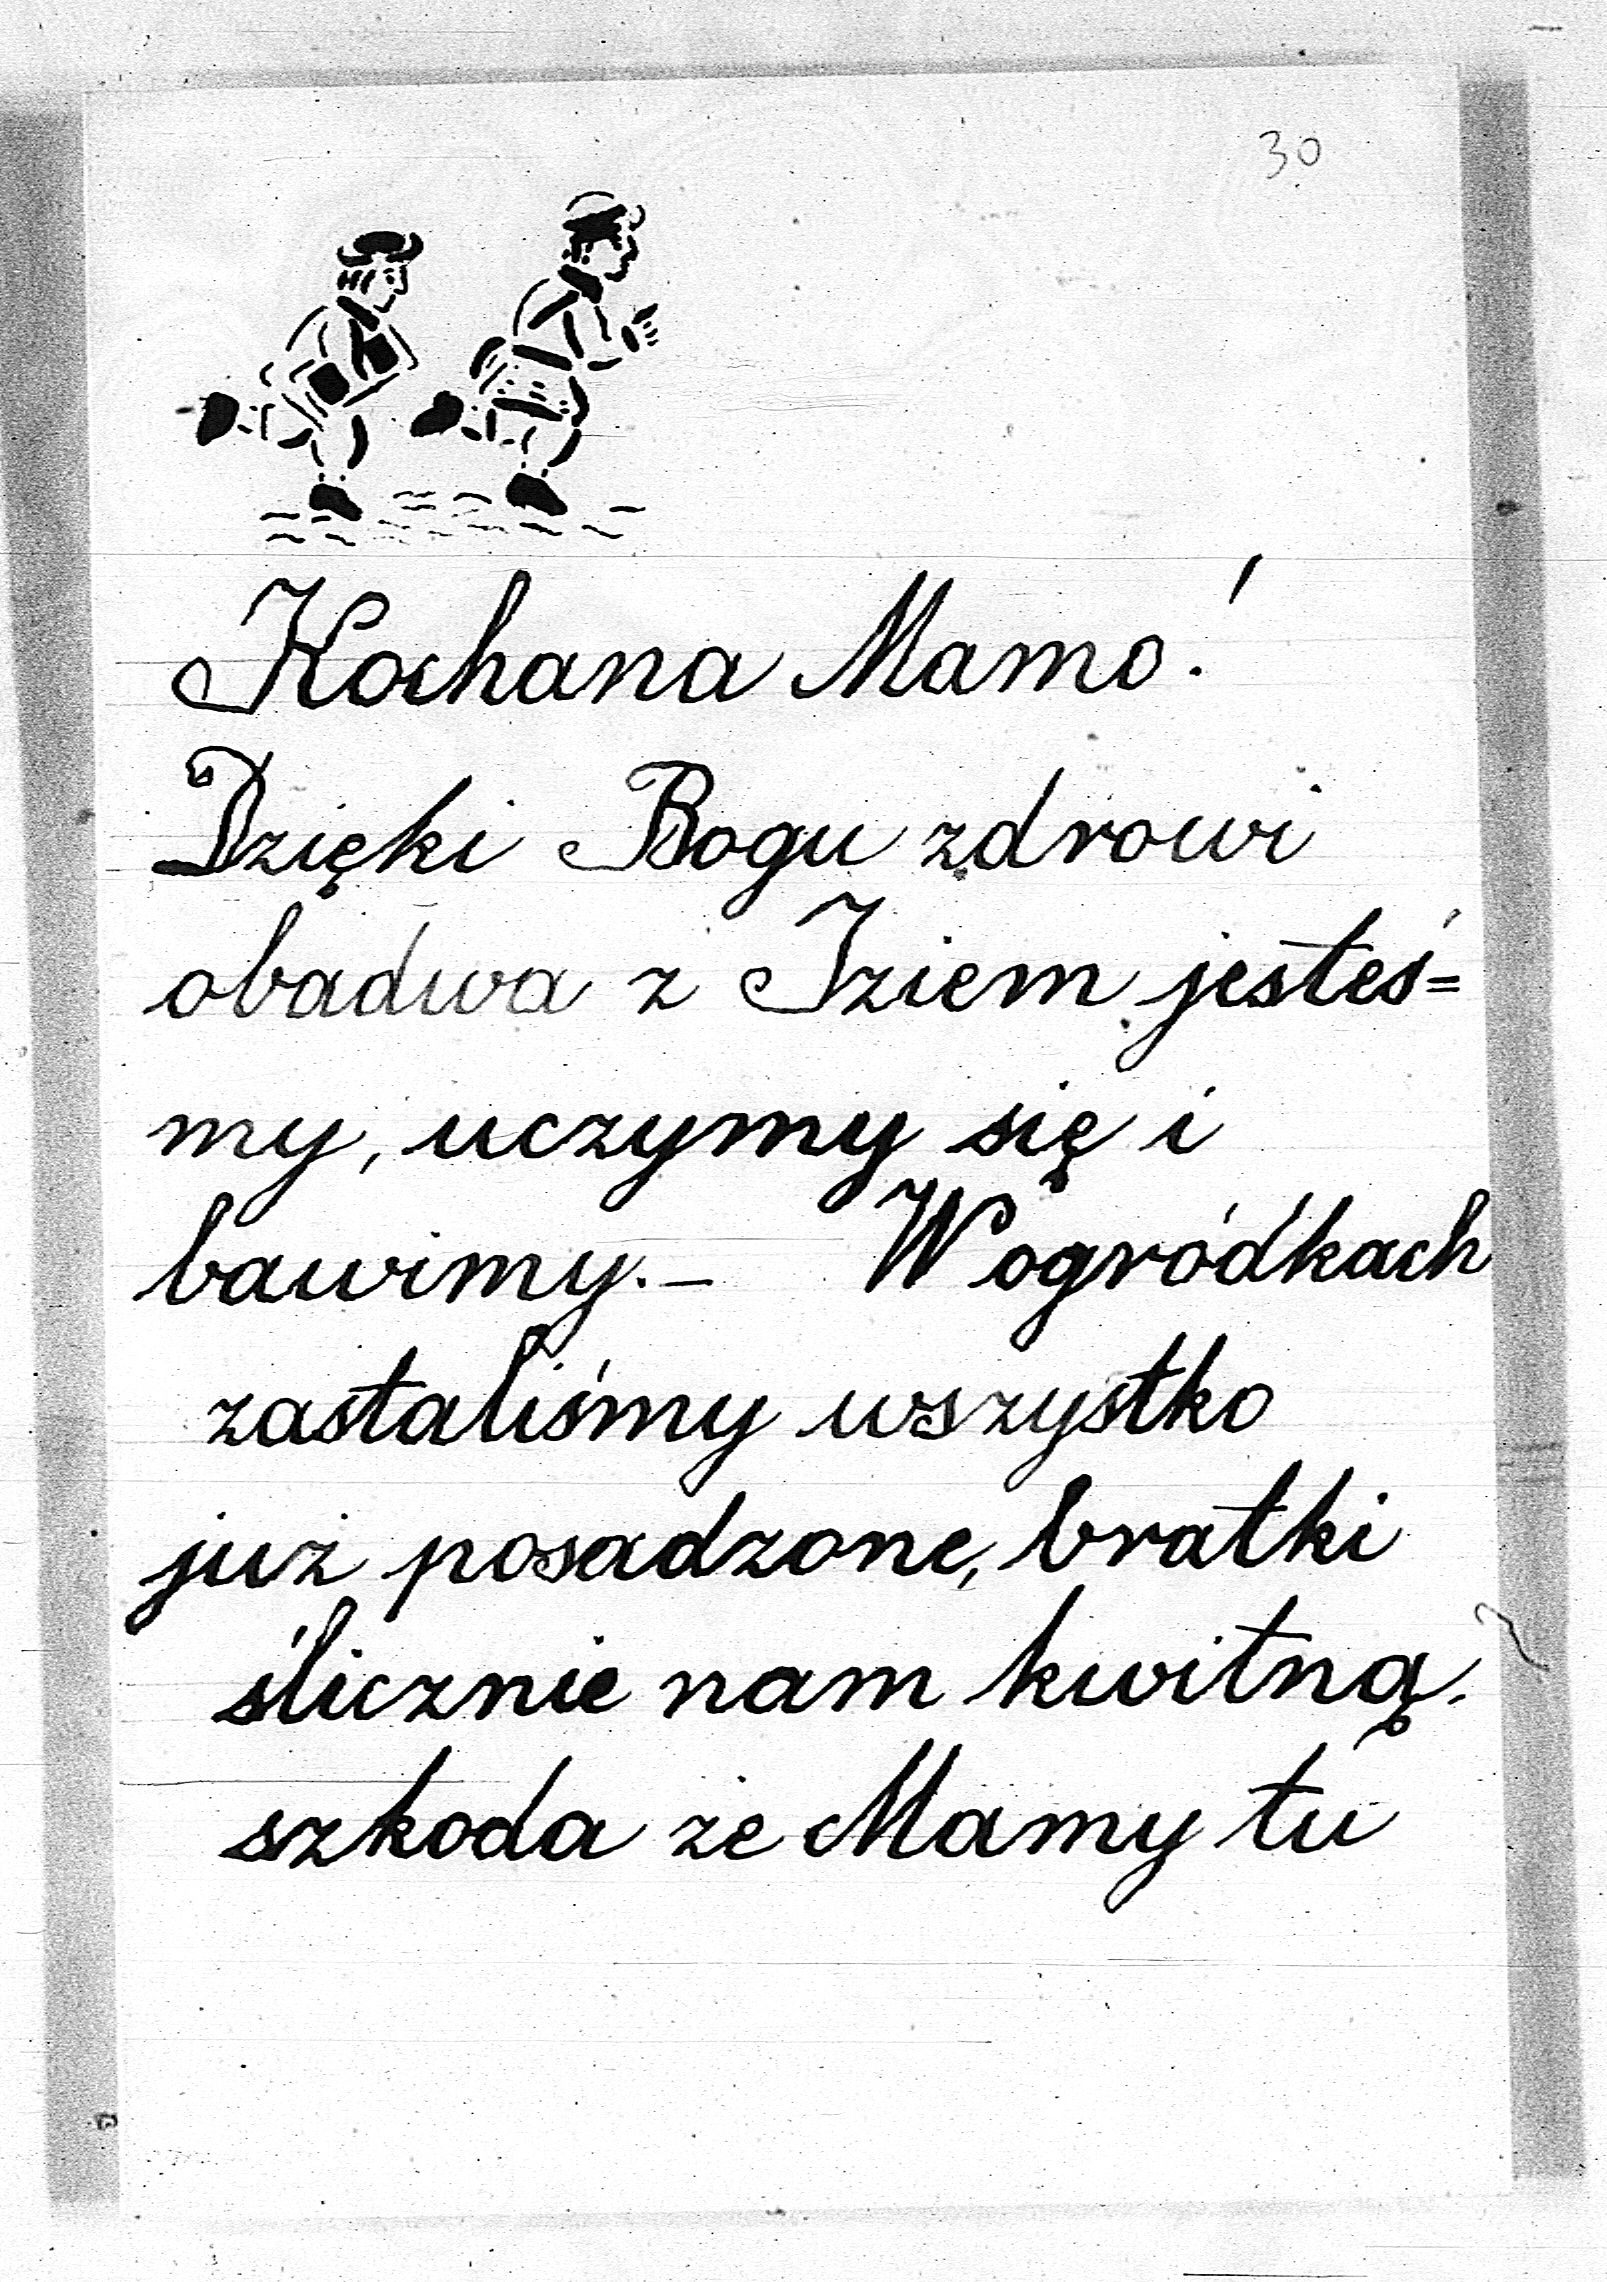 30
Kochana Mamo!
Dzięki Bogu zdrowi
obadwa z Iziem jesteś=
my, uczymy się i
bawimy.— W ogródkach
zastaliśmy wszystko
już posadzone, bratki
ślicznie nam kwitną.
szkoda że Mamy tu